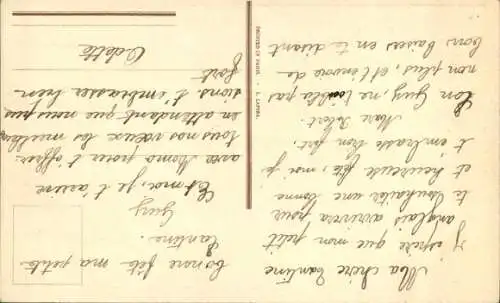 Ma chère Tantine
J'espère que mon petit
anglais arrivera pour
te souhaiter une bonne
et heureuse fête, moi je
t'embrasse bien fort.
Marc
Ton Guy, ne t'oublie pas
non plus, et t'envoie de
bons baisers en te disant
bonne fête ma petite
Tantine.
Guy
Et moi, je t'arrive
avec Momo pour t'offrir
tous nos vœux les meilleurs
en attendant que nous puis
sions t'embrasser bien
fort
Odette